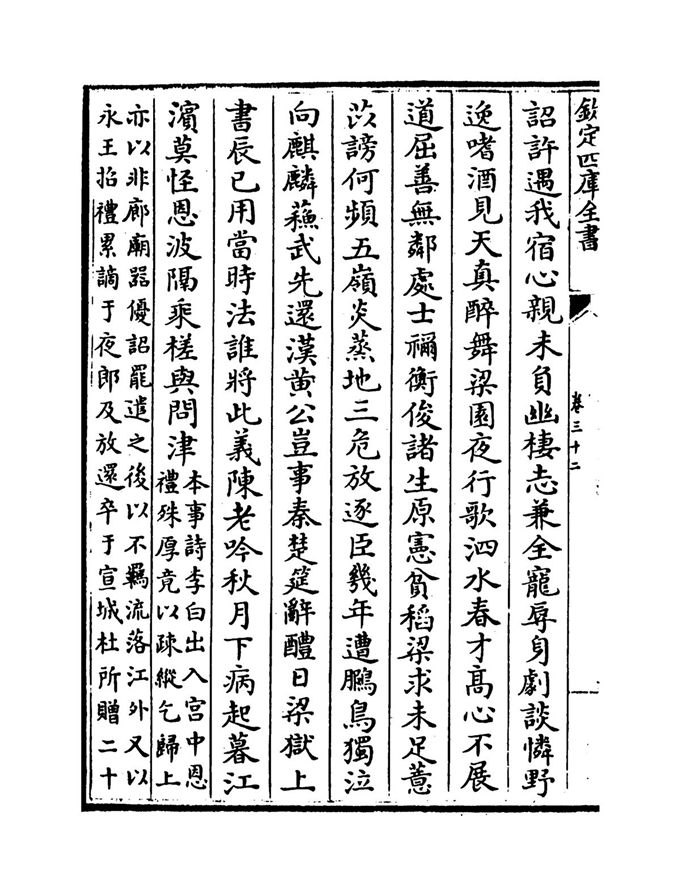 欽定四庫全書
卷三十二
詔許遇我宿心親未負幽棲志兼全寵辱身劇談憐野
逸嗜酒見天真醉舞梁園夜行歌泗水春才髙心不展
道屈善無鄰處士禰衡俊諸生原憲貧稻梁求未足薏
苡謗何頻五嶺炎蒸地三危放逐臣幾年遭鵩鳥獨泣
向麒麟蘓武先還漢黄公豈事秦楚筵辭醴日梁獄上
書辰已用當時法誰將此義陳老吟秋月下病起暮江
濱莫怪恩波隔乘槎與問津
本事詩李白出入宫中恩
禮殊厚竟以疎縱乞歸上
亦以非廊廟器優詔罷遣之後以不羈流落江外又以
永王招禮累謫于夜郎及放還卒于宣城杜所贈二十